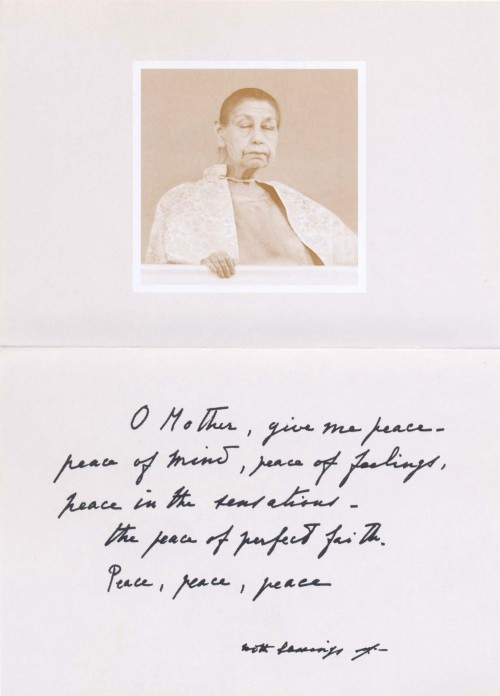 O Mother, give me peace -
peace of mind, peace of feelings,
peace in the sensations -
the peace of perfect faith.
Peace, peace, peace
with blessings